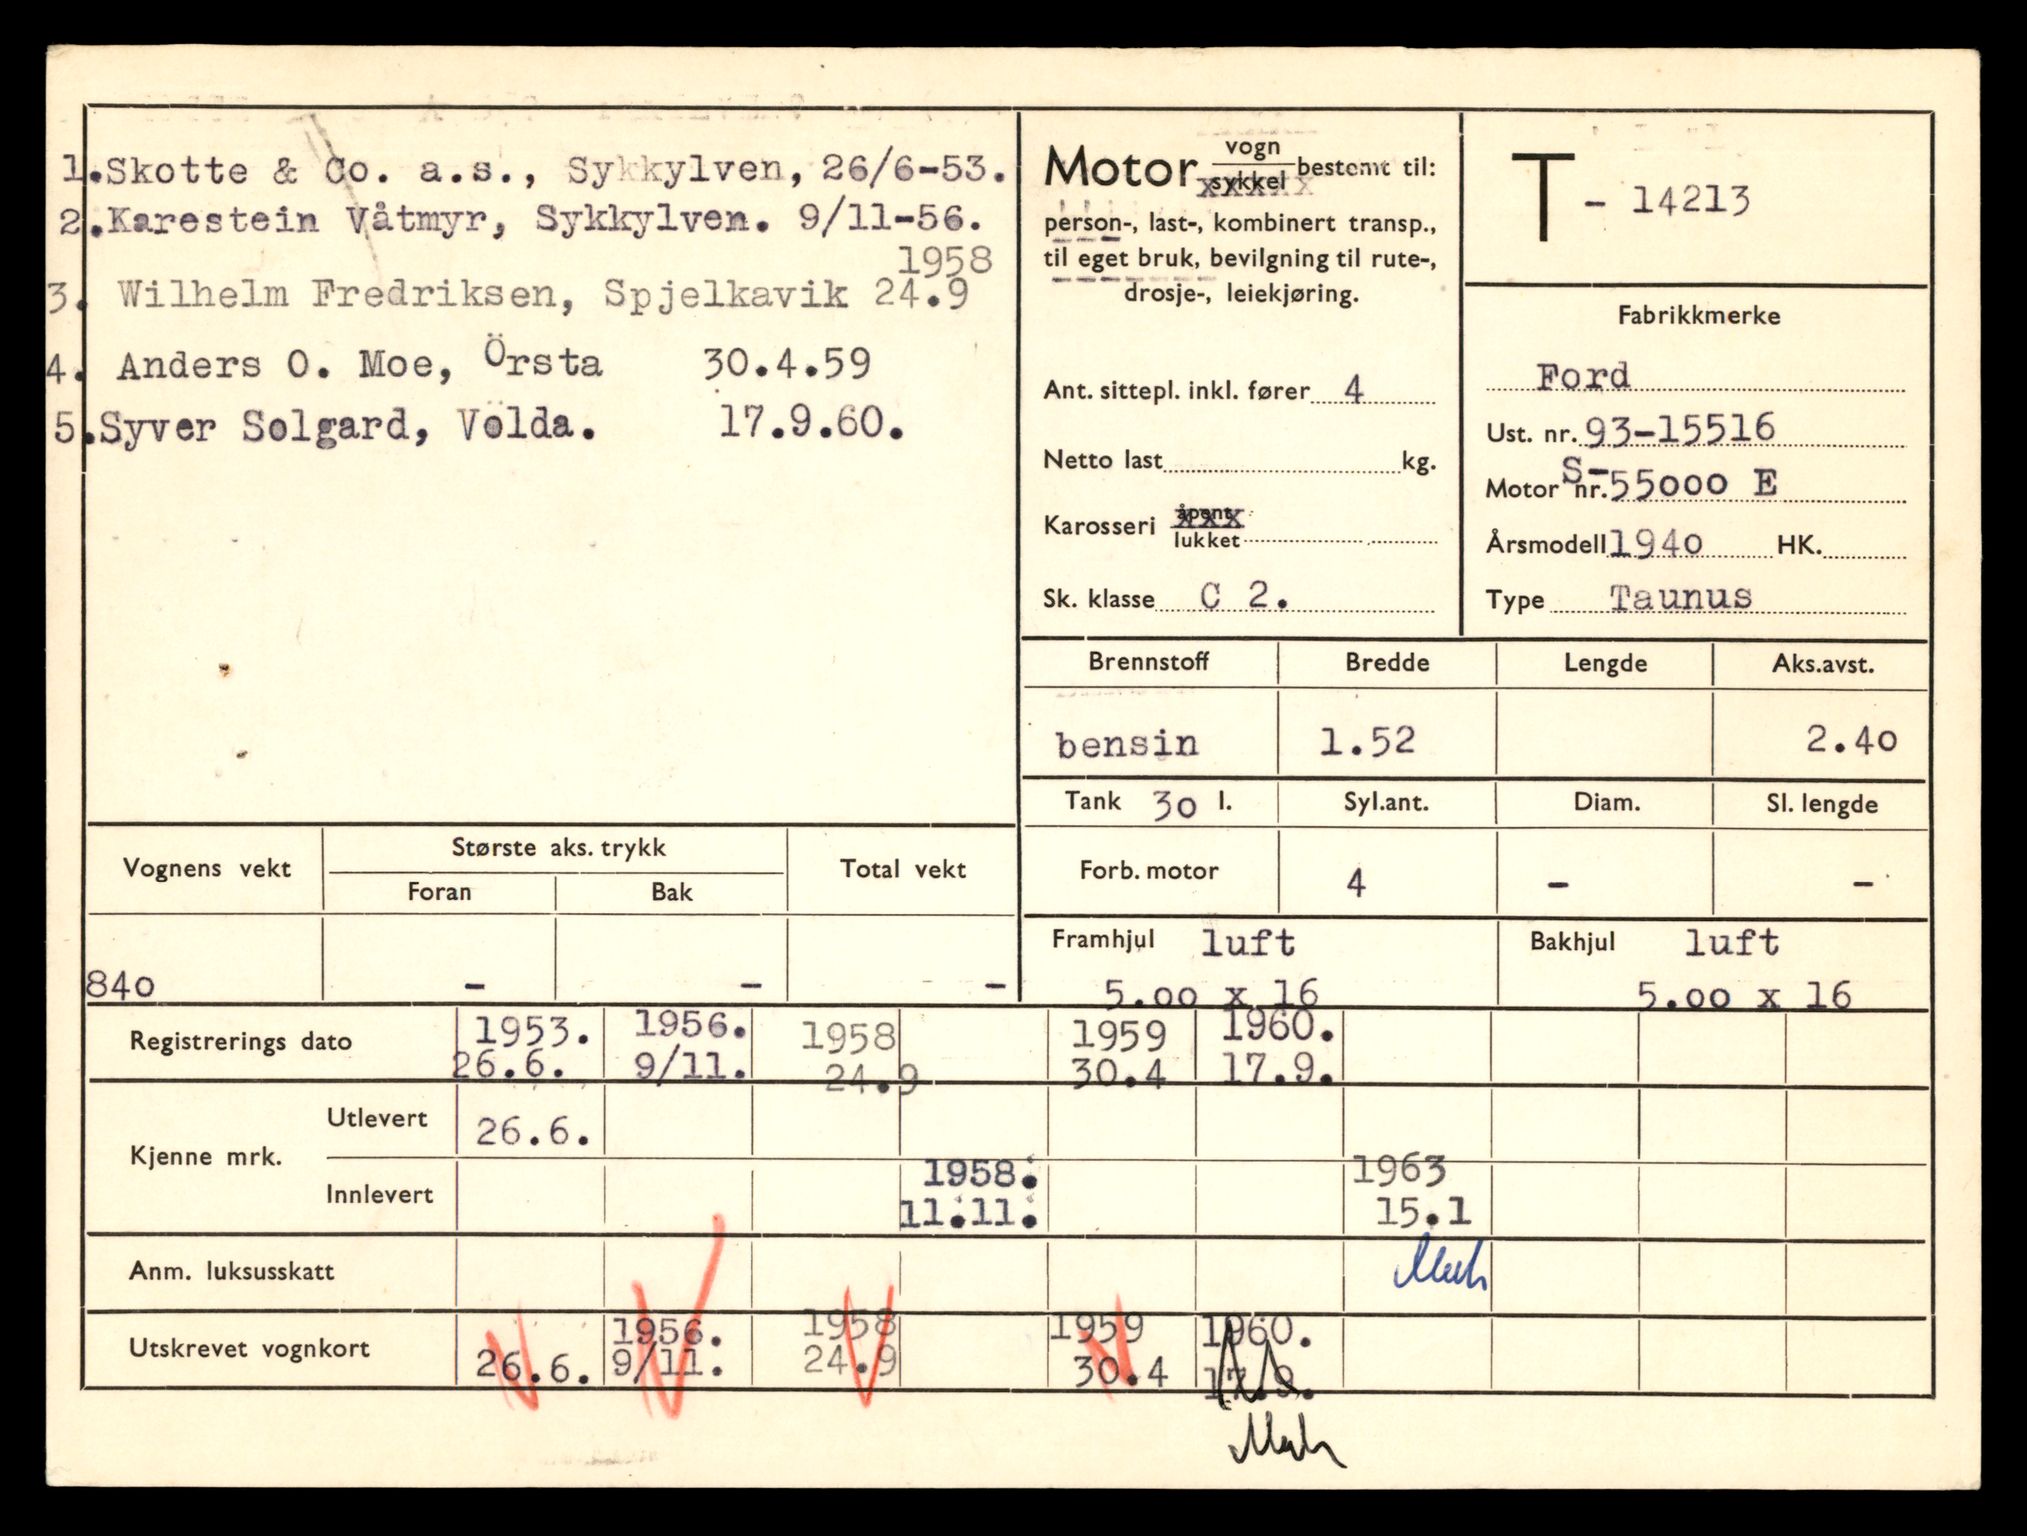 1. Skotte & Co. a.s., Sykkylven, 26/6-53.
2. Karestein Våtmyr, Sykkylven. 9/11-56.
1958
3. Wilhelm Fredriksen, Spjelkavik 24.9
4. Anders O. Moe, Örsta 30.4.59
5. Syver Solgard, Volda. 17.9.60.
Motor vogn sykkel bestemt til:
person-, last-, kombinert transp.,
til eget bruk, bevilgning til rute-,
drosje-, leiekjøring.
Ant. sittepl. inkl. fører 4
Netto last kg.
Karosseri åpent lukket
Sk. klasse C 2.
T - 14213
Fabrikkmerke
Ford
Ust. nr. 93-15516
Motor nr. S-55000 E
Årsmodell 1940 HK.
Type Taunus
Brennstoff Bredde Lengde Aks.avst.
bensin 1.52 2.40
Tank 30 l. Syl.ant. Diam. Sl. lengde
Forb. motor 4 - -
Framhjul luft Bakhjul luft
5.00 x 16 5.00 x 16
Vognens vekt Største aks. trykk Total vekt
Foran Bak
840 - - -
Registrerings dato 1953. 1956. 1958 1959 1960.
26.6. 9/11. 24.9 30.4 17.9.
Kjenne mrk. Utlevert 26.6.
Innlevert 1958. 1963
11.11. 15.1
Anm. luksusskatt
Utskrevet vognkort 1956. 1958 1959 1960.
26.6. 9/11. 24.9 30.4 17.9.